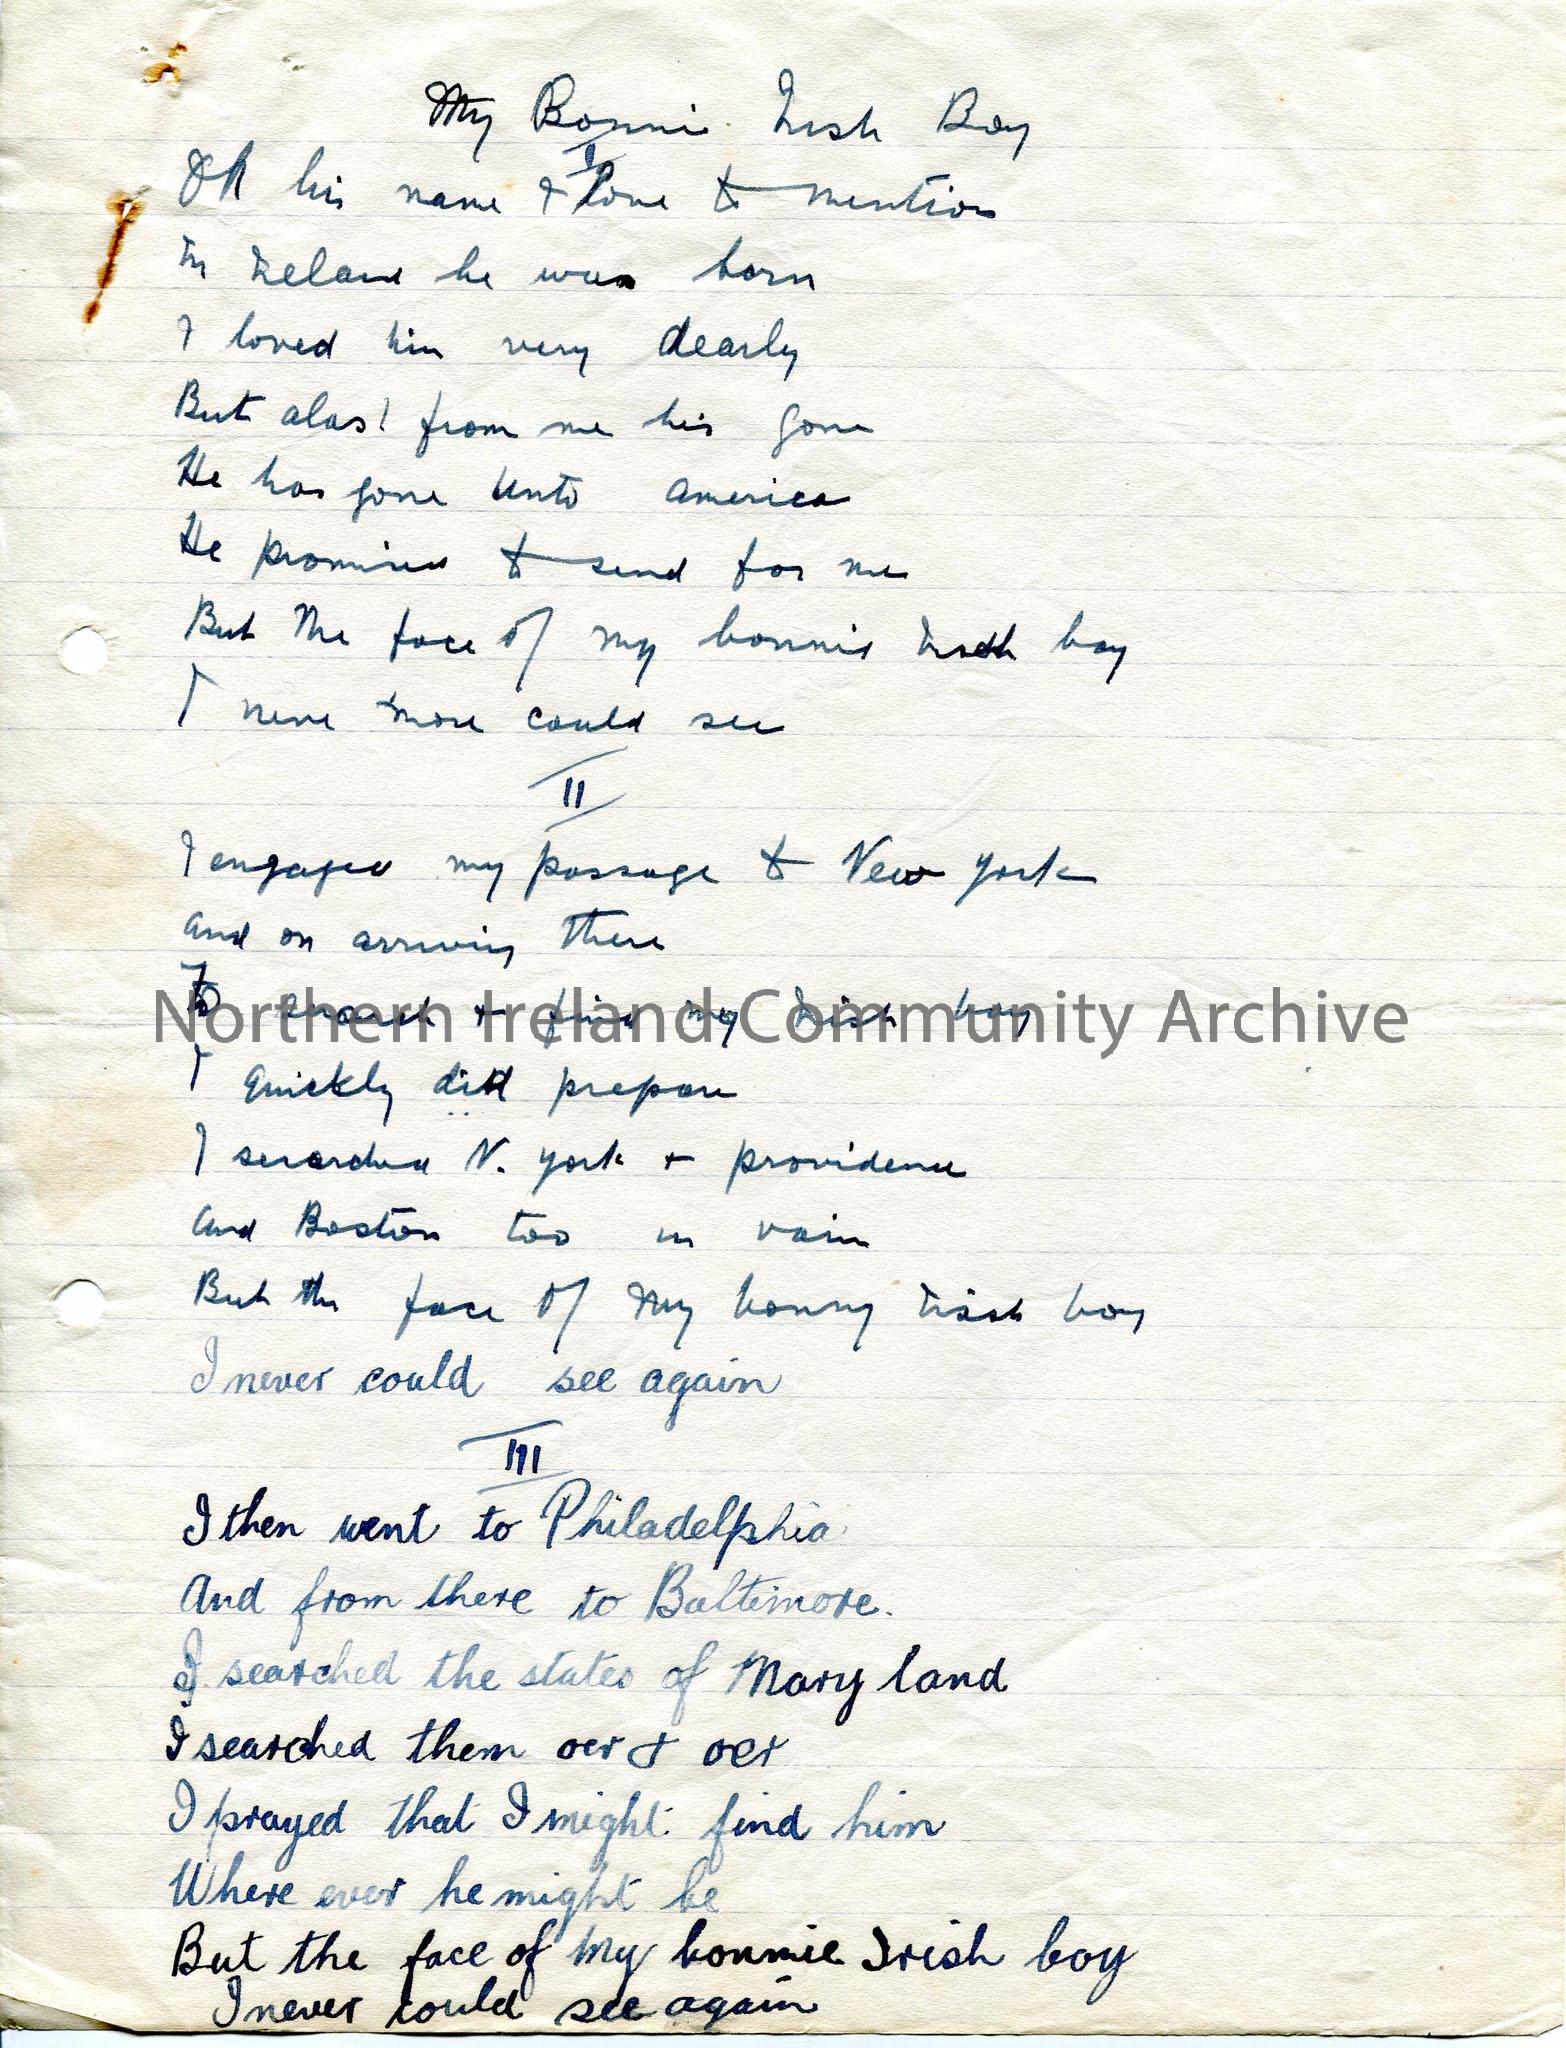 My Bonnie Irish Boy
I
Oh his name I love to mention
In Ireland he was born
I loved him very dearly
But alas! from me his gone
He has gone unto america
He promised to send for me
But the face of my bonnie Irish boy
I never more could see
II
I engaged my passage to New york
and on arriving there
To search + find my Irish boy
I quickly did prepare
I serarched N. york + providence
and Boston too in vain
But the face of my bonny Irish boy
I never could see again
III
I then went to Philadelphia
And from there to Baltimore.
I searched the states of Mary land
I searched them oer & oer
I prayed that I might find him
Where ever he might be
But the face of my bonnie Irish boy
I never could see again
Northern Ireland Community Archive